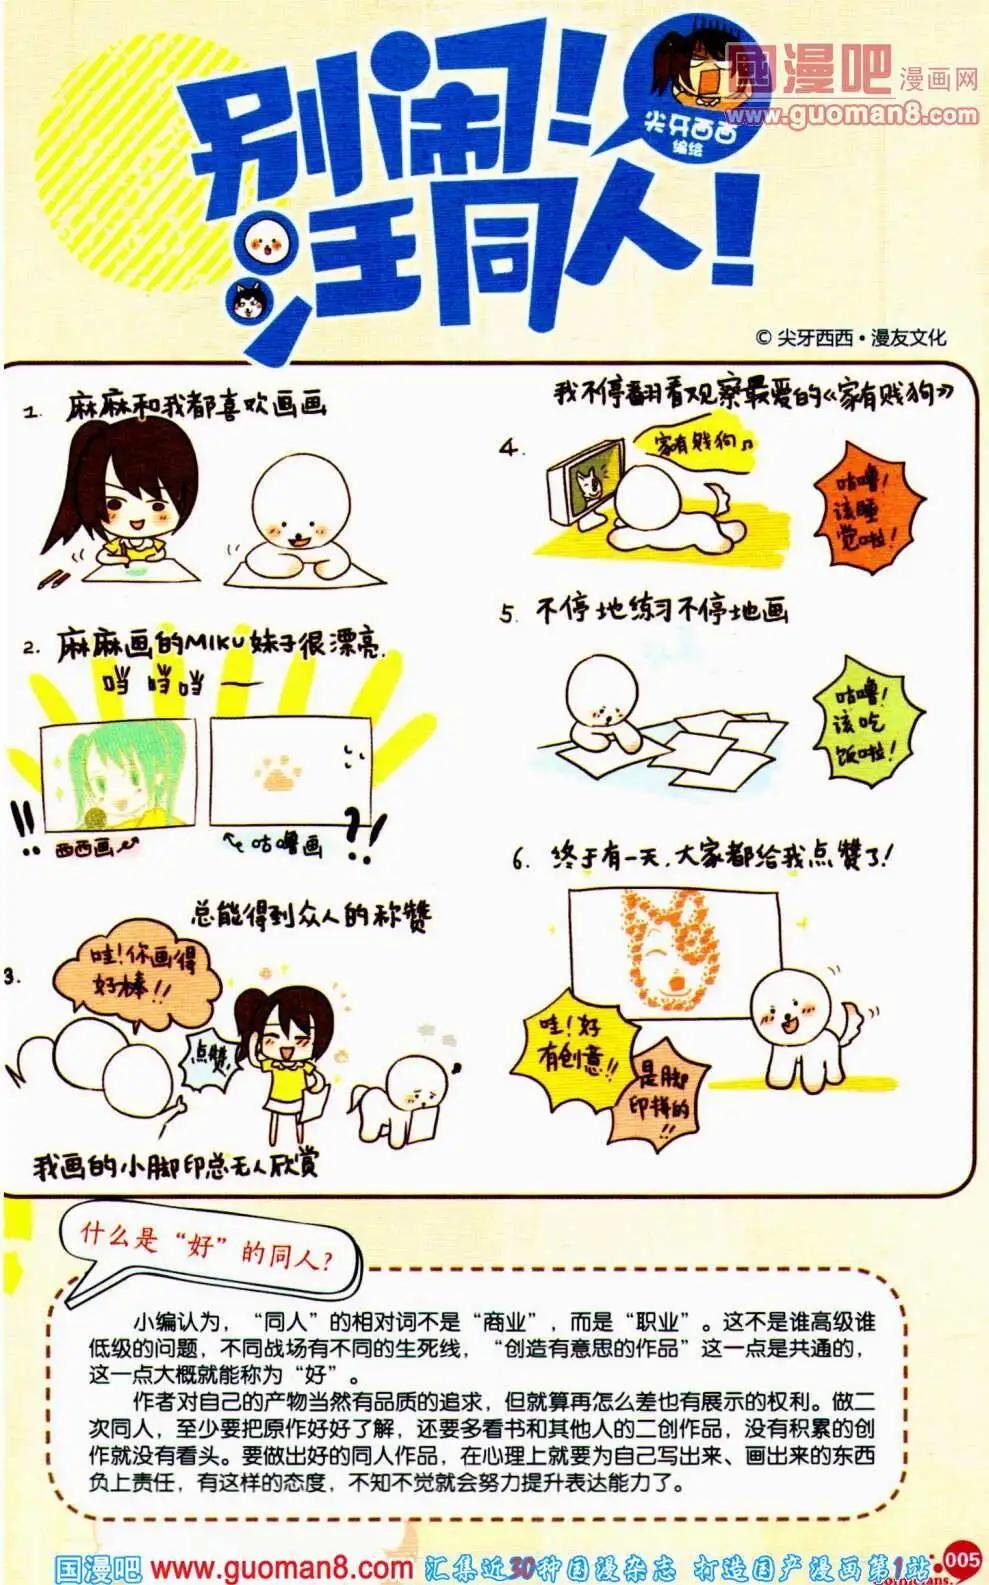 别闹！
汪同人！
尖牙西西
编绘
国漫吧 漫画网
www.guoman8.com
© 尖牙西西·漫友文化
1. 麻麻和我都喜欢画画
2. 麻麻画的MIKU妹子很漂亮.
哟 哟 哟 —
!!
西西画
咕噜画
?!
总能得到众人的称赞
3.
哇!你画得
好棒!!
点赞!
我画的小脚印总无人欣赏
我不停翻看观察最爱的《家有贱狗》
4.
家有贱狗♫
咕噜!
该睡
觉啦!
5. 不停地练习不停地画
咕噜!
该吃
饭啦!
6. 终于有一天,大家都给我点赞了!
哇!好
有创意!!
是脚
印拼的!!
什么是“好”的同人?
小编认为，“同人”的相对词不是“商业”，而是“职业”。这不是谁高级谁
低级的问题，不同战场有不同的生死线，“创造有意思的作品”这一点是共通的，
这一点大概就能称为“好”。
作者对自己的产物当然有品质的追求，但就算再怎么差也有展示的权利。做二
次同人，至少要把原作好好了解，还要多看书和其他人的二创作品，没有积累的创
作就没有看头。要做出好的同人作品，在心理上就要为自己写出来、画出来的东西
负上责任，有这样的态度，不知不觉就会努力提升表达能力了。
国漫吧 www.guoman8.com 汇集近30种国漫杂志 打造国产漫画第1站
005